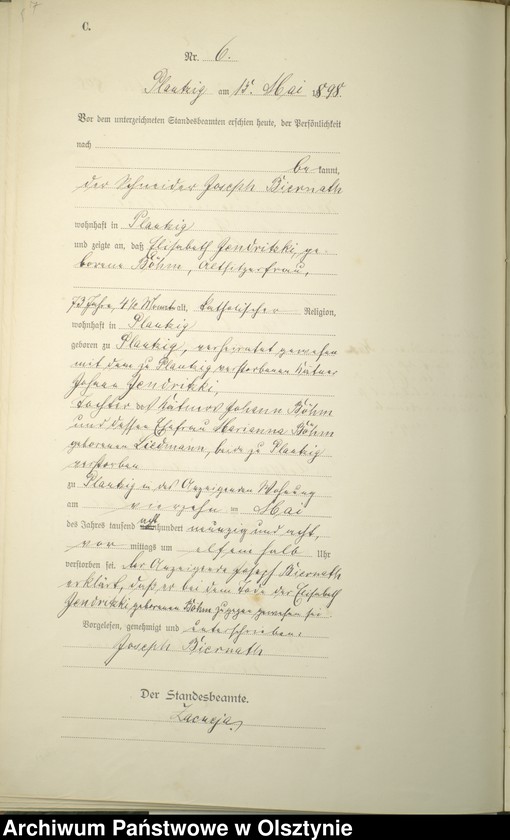 C.
Nr. 6.
Plautzig am 15. Mai 1898.
Vor dem unterzeichneten Standesbeamten erschien heute, der Persönlichkeit
nach
be kannt,
der Schneider Joseph Biernath
wohnhaft in Plautzig
und zeigte an, daß Elisabeth Jendritzki, ge-
borene Böhm, Altsitzerfrau,
73 Jahre, 4 1/2 Monat alt, katholischer Religion,
wohnhaft in Plautzig
geboren zu Plautzig, verheiratet gewesen
mit dem zu Plautzig verstorbenen Kätner
Johann Jendritzki,
Tochter des Kätners Johann Böhm
und dessen Ehefrau Marianna Böhm
geborenen Liedmann, beide zu Plautzig
verstorben
zu Plautzig in des Anzeigenden Wohnung
am vierzehn ten Mai
des Jahres tausend acht hundert neunzig und acht,
vor mittags um elfeinhalb Uhr
verstorben sei. Der Anzeigende Joseph Biernath
erklärt, daß er bei dem Tode der Elisabeth
Jendritzki geborenen Böhm zugegen gewesen sei
Vorgelesen, genehmigt und unterschrieben:
Joseph Biernath
Der Standesbeamte.
Archiwum Państwowe w Olsztynie